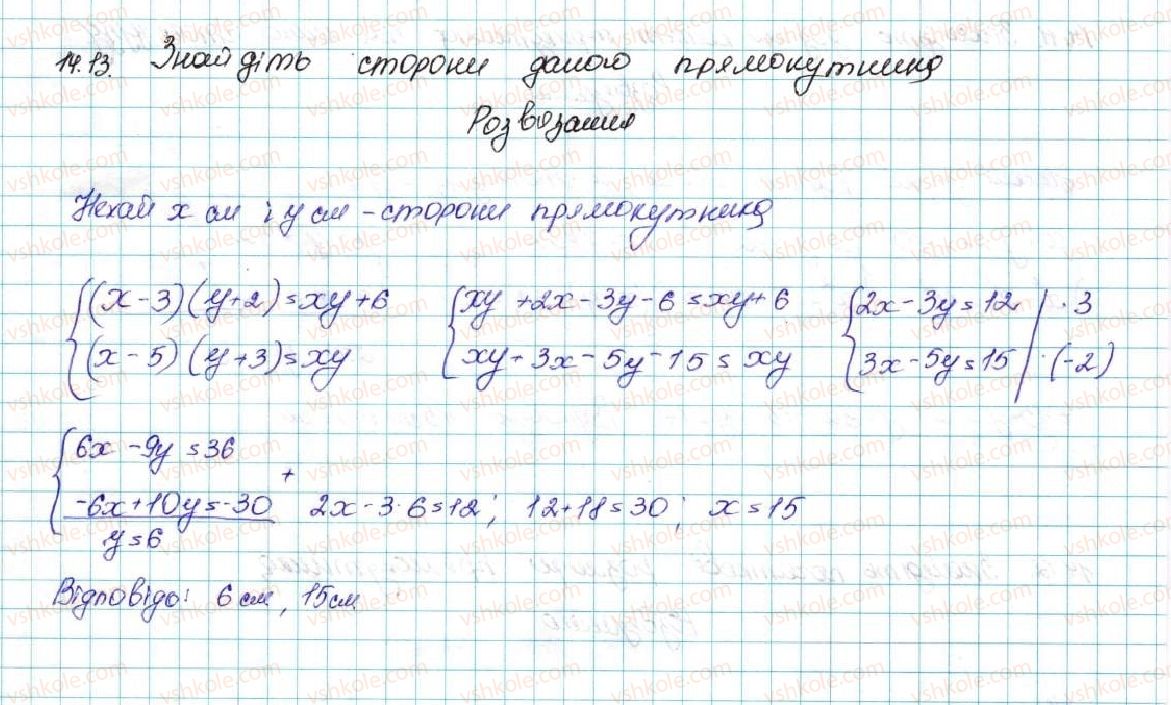 14.13. Знайдіть сторони даного прямокутника
Розв'язання
Нехай x см і y см - сторони прямокутника
{(x-3)(y+2)=xy+6 {xy+2x-3y-6=xy+6 {2x-3y=12 | ·3
{(x-5)(y+3)=xy {xy+3x-5y-15=xy {3x-5y=15 | ·(-2)
{6x-9y=36
+
{-6x+10y=-30 2x-3·6=12; 12+18=30; x=15
y=6
Відповідь: 6 см, 15 см